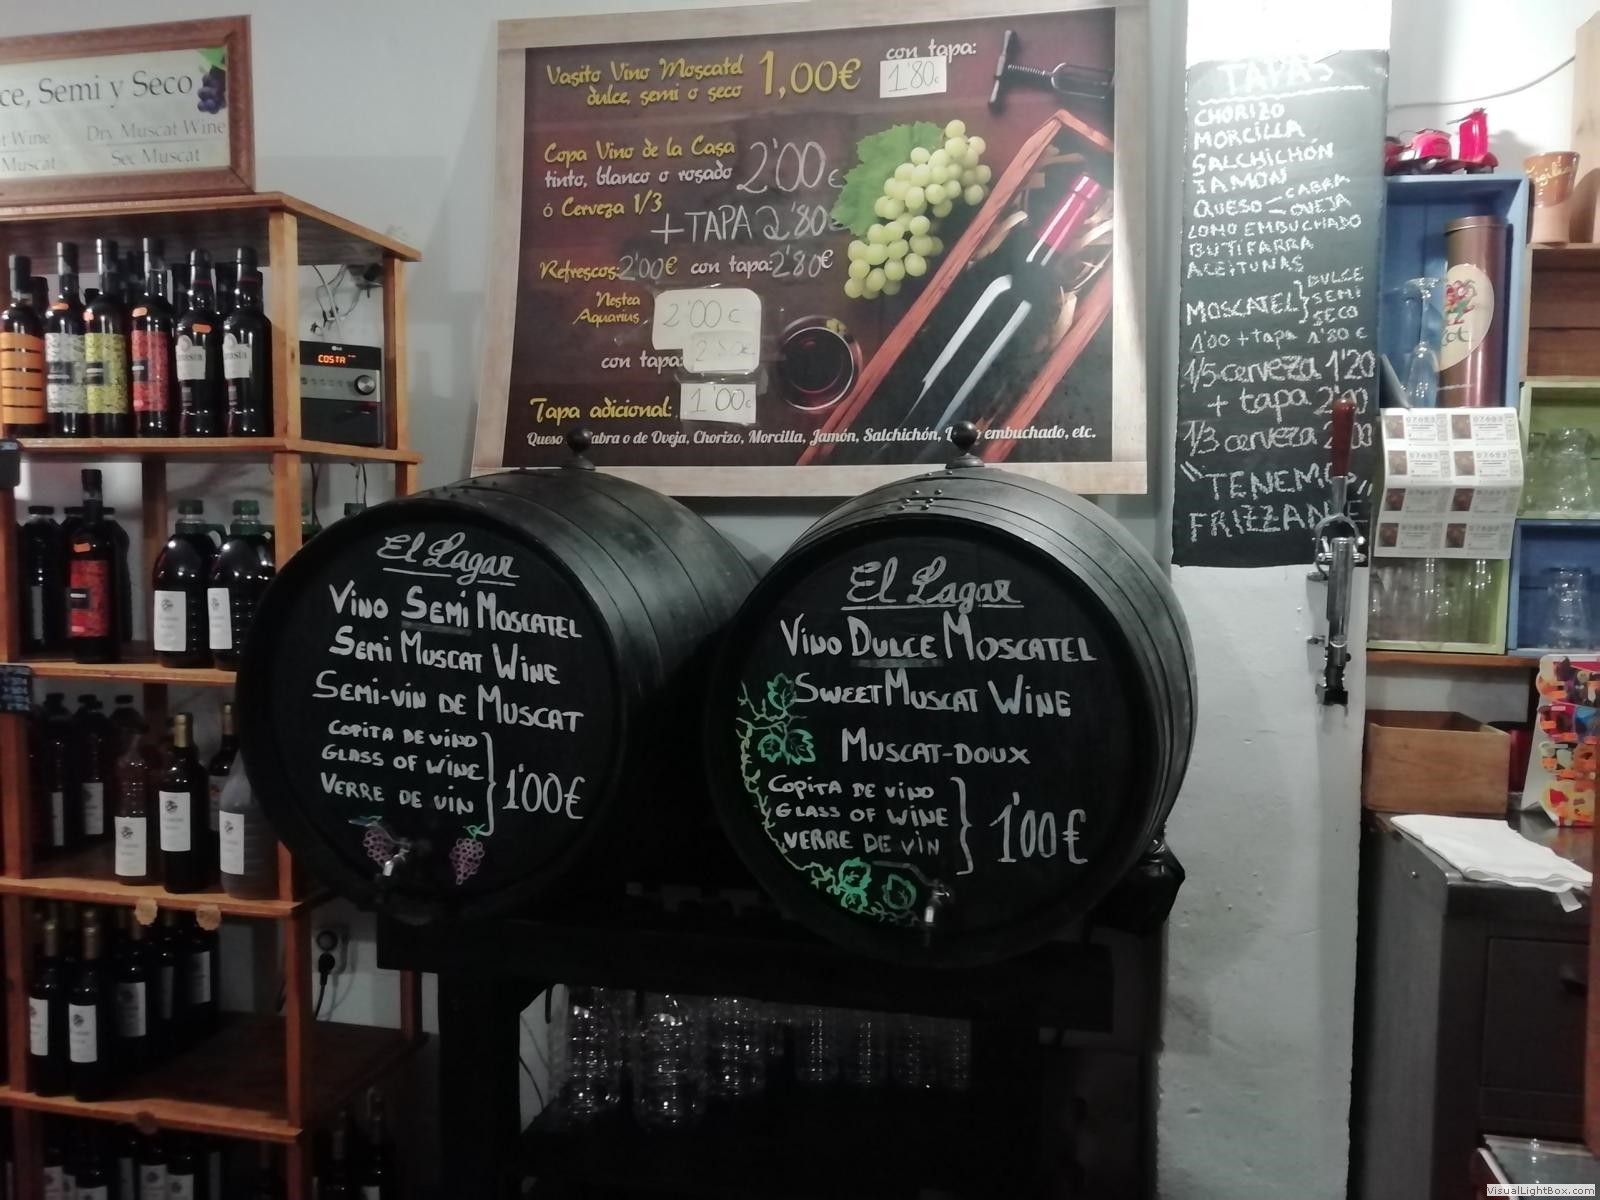 ce, Semi y Seco
t Wine
Dry Muscat Wine
Muscat
Sec Muscat
COSTA
Vasito Vino Moscatel
dulce, semi o seco
1,00€
con tapa:
1'80€
Copa Vino de la Casa
tinto, blanco o rosado
ó Cerveza 1/3
2'00€
+TAPA 2'80
Refrescos: 2'00€ con tapa: 2'80€
Nestea
Aquarius
2'00€
con tapa:
2'80€
Tapa adicional:
1'00€
Queso Cabra o de Oveja, Chorizo, Morcilla, Jamón, Salchichón, embuchado, etc.
El Lagar
Vino Semi Moscatel
Semi Muscat Wine
Semi-vin de Muscat
Copita de vino
Glass of wine
Verre de vin
1'00€
El Lagar
Vino Dulce Moscatel
Sweet Muscat Wine
Muscat-doux
Copita de vino
Glass of wine
Verre de vin
1'00€
TAPAS
CHORIZO
MORCILLA
SALCHICHÓN
JAMÓN
QUESO - CABRA
- OVEJA
LOMO EMBUCHADO
BUTIFARRA
ACEITUNAS
MOSCATEL
DULCE
SEMI
SECO
1'00 + tapa 1'80 €
1/5 cerveza 1'20
+ tapa 2'00
1/3 cerveza 2'00
"TENEMOS"
FRIZZANTE
07683
07683
VisualLightBox.com